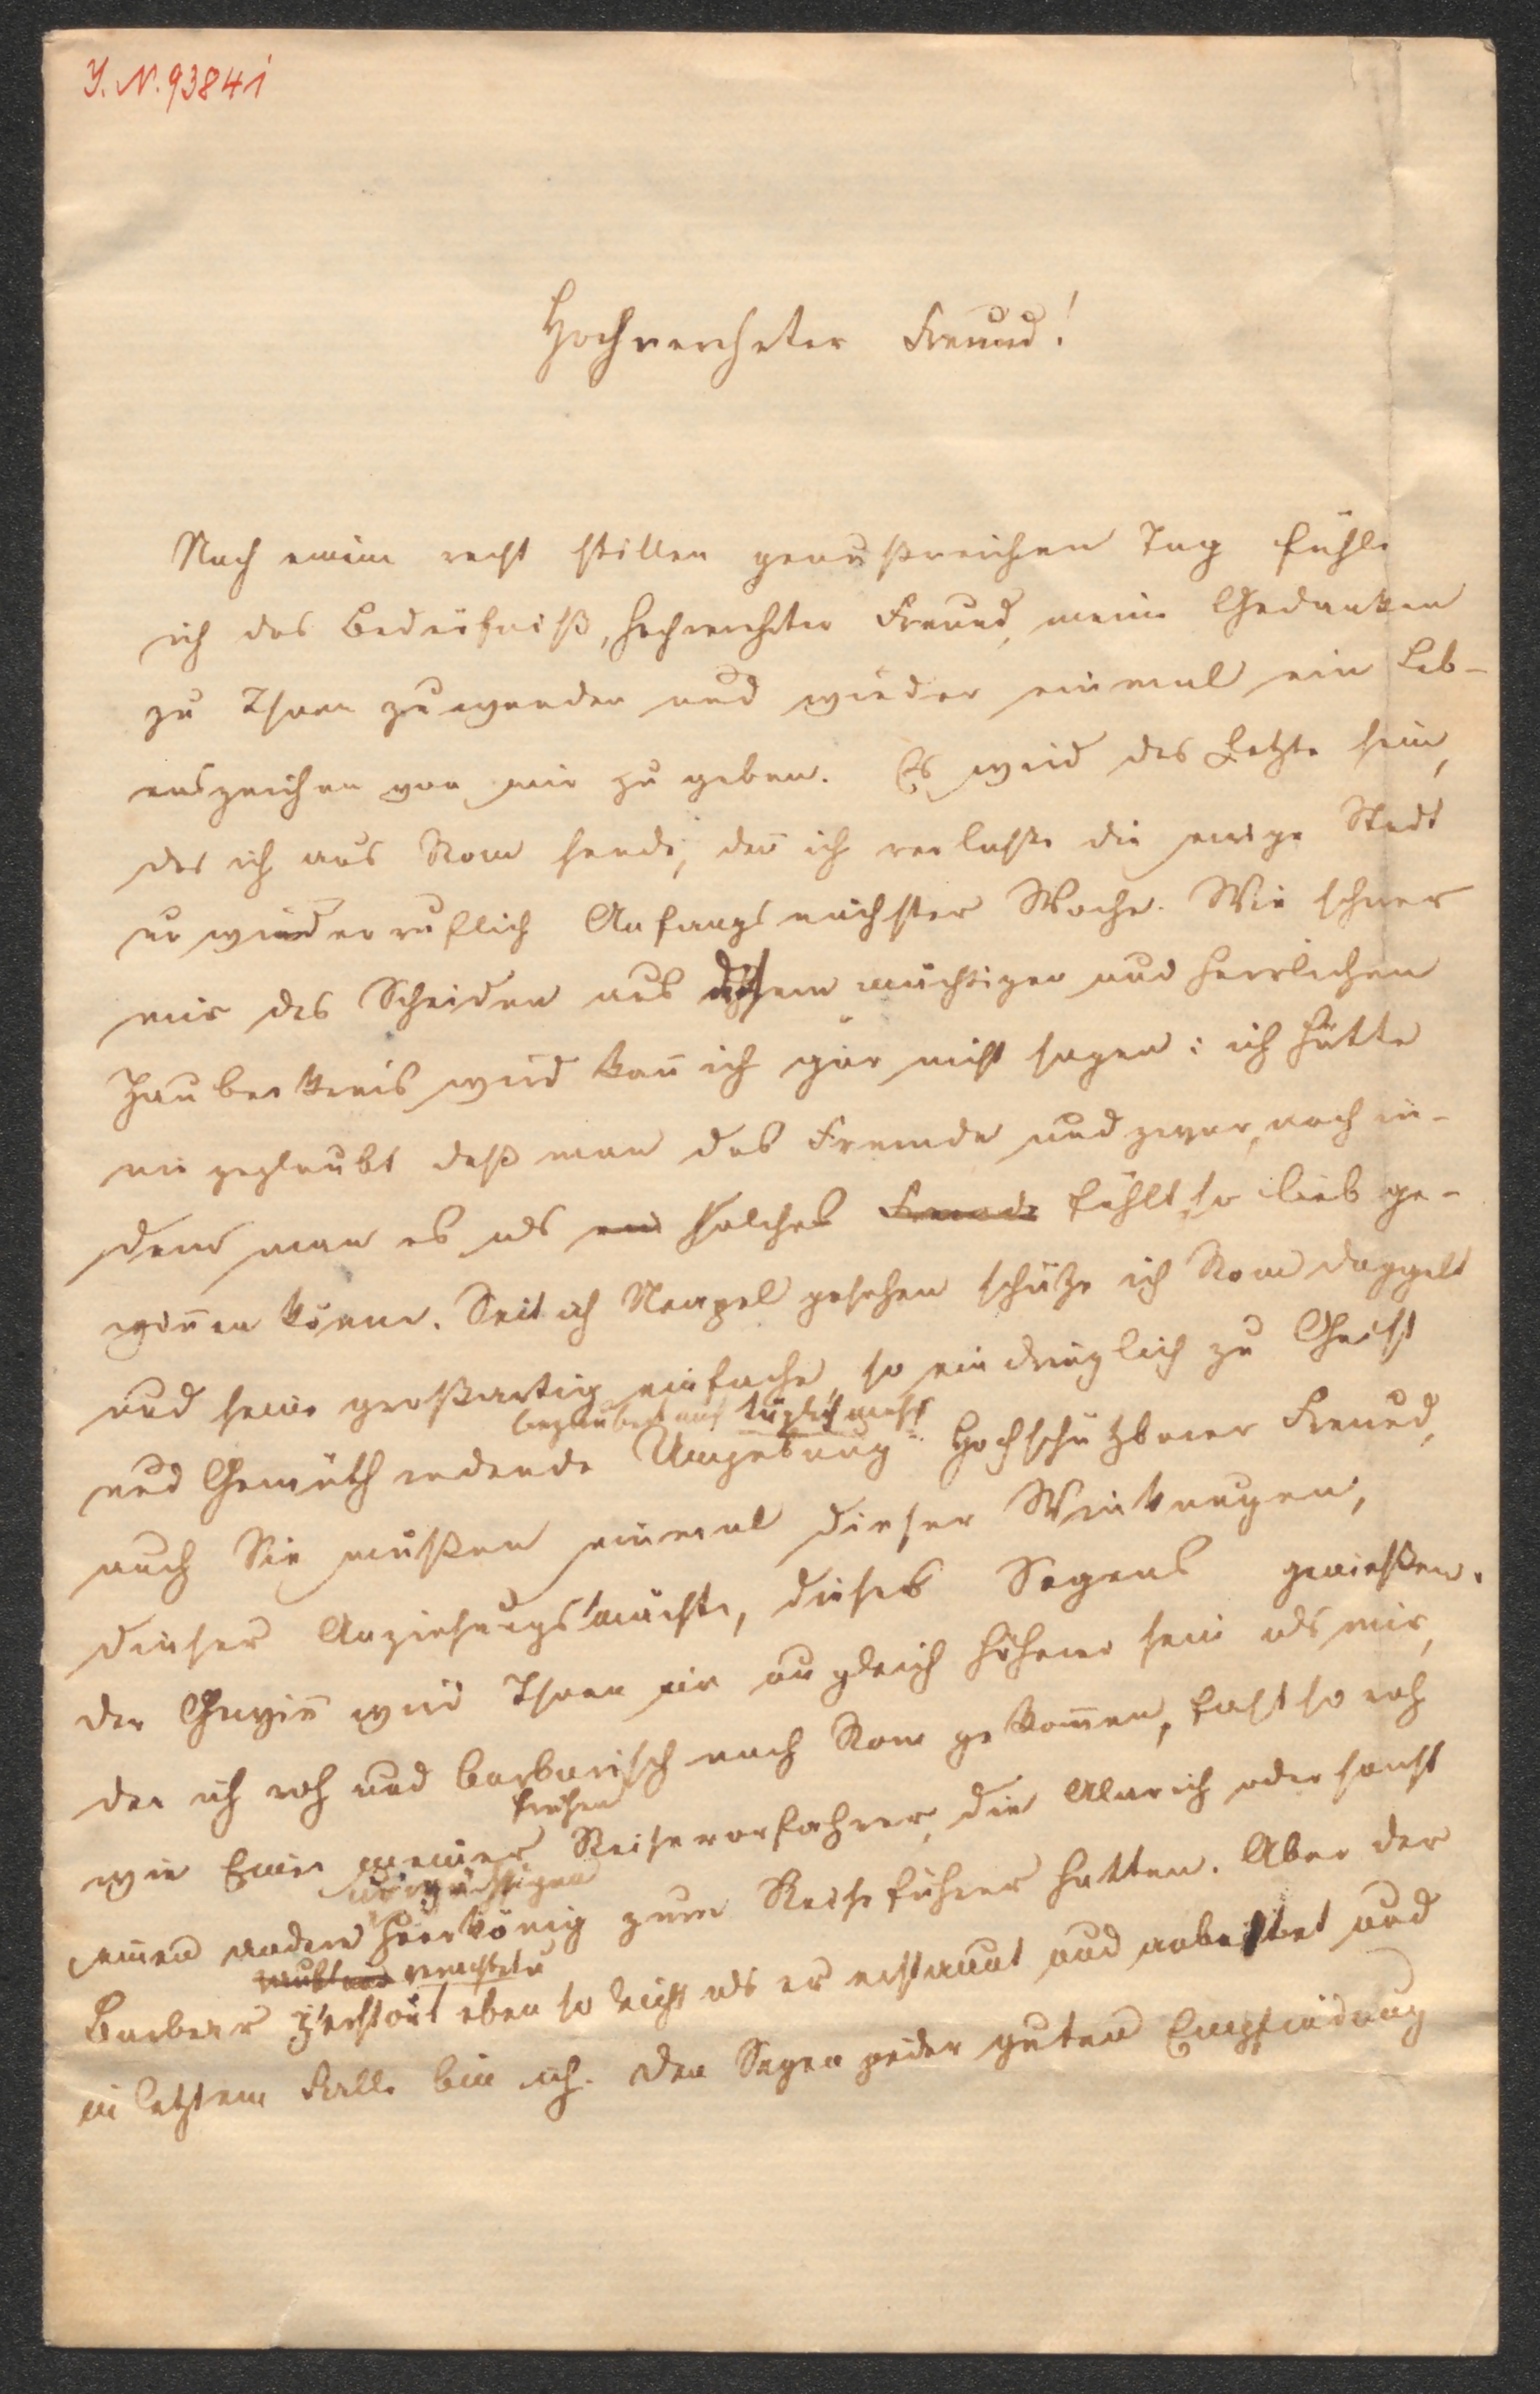 I.N. 93841
Hochverehrter Freund!
Nach einem recht stillen genußreichen Tag fühle
ich das Bedürfniß, hochverehrter Freund, meine Gedanken
zu Ihnen zu wenden und wieder einmal ein Leb-
enszeichen von mir zu geben. Es wird das Letzte sein,
das ich aus Rom sende, deñ ich verlaße die ewige Stadt
unwiederruflich Anfangs nächster Woche. Wie schwer
mir das Scheiden aus diesem mächtigen und herrlichen
Zauberkreis wird kañ ich gar nicht sagen: ich hätte
nie geglaubt daß man das Fremde und zwar, noch in-
dem man es als ein solches Fremde fühlt, so lieb ge-
wiñen könne. Seit ich Neapel gesehen schätze ich Rom doppelt
und seine großartig einfache, so eindringlich zu Geist
bezaubert mich täglich mehr
und Gemüth redende Umgebung. Hochschätzbarer Freund,
auch Sie müßen einmal dieser Wirkungen,
dieser Anziehungsmächte, dieses Segens genießen.
Der Gewiñ wird Ihnen ein ungleich höherer sein als mir,
der ich roh und barbarisch nach Rom gekom̃en, fast so roh
frühen
wie Einer meiner Reisevorfahren, die Alarich oder sonst
einen andern Heerkönig zum Reiseführer hatten. Aber der
verachtet u
Barbar zerstört eben so leicht als er erstaunt und anbethet und
in letztem Falle bin ich. Den Segen jeder guten Empfindung